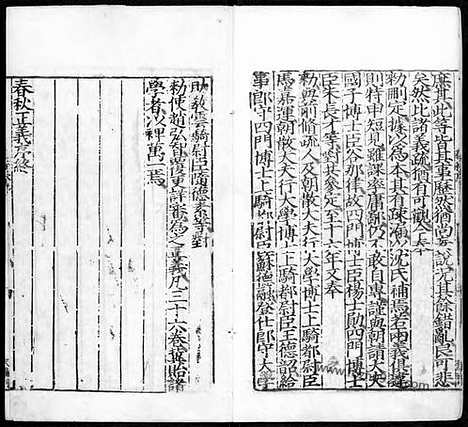 庶世此等皆其事歷然猶尚妄說况其餘錯亂良可悲
矣然比諸義疏猶有可觀今奉
勑刪定據以爲本其有疎漏以沈氏補焉若兩義俱違
則特申短見雖課率庸鄙仍不敢自專謹與朝請大夫
國子博士臣谷那律故四門博士臣楊士勛四門博士
臣朱長才等對共參定至十六年又奉
勑與前脩疏人及朝散大夫行大學博士上騎都尉臣
馬嘉運朝散大夫行大學博士上騎都尉臣王德韶給
事郎守四門博士上騎都尉臣蘇德融登仕郎守大學
助教雲騎尉臣隨德素等對
勑使趙弘智覆更詳審爲之正義凡三十六卷冀貽諸
學者以裨萬一焉
春秋正義序終